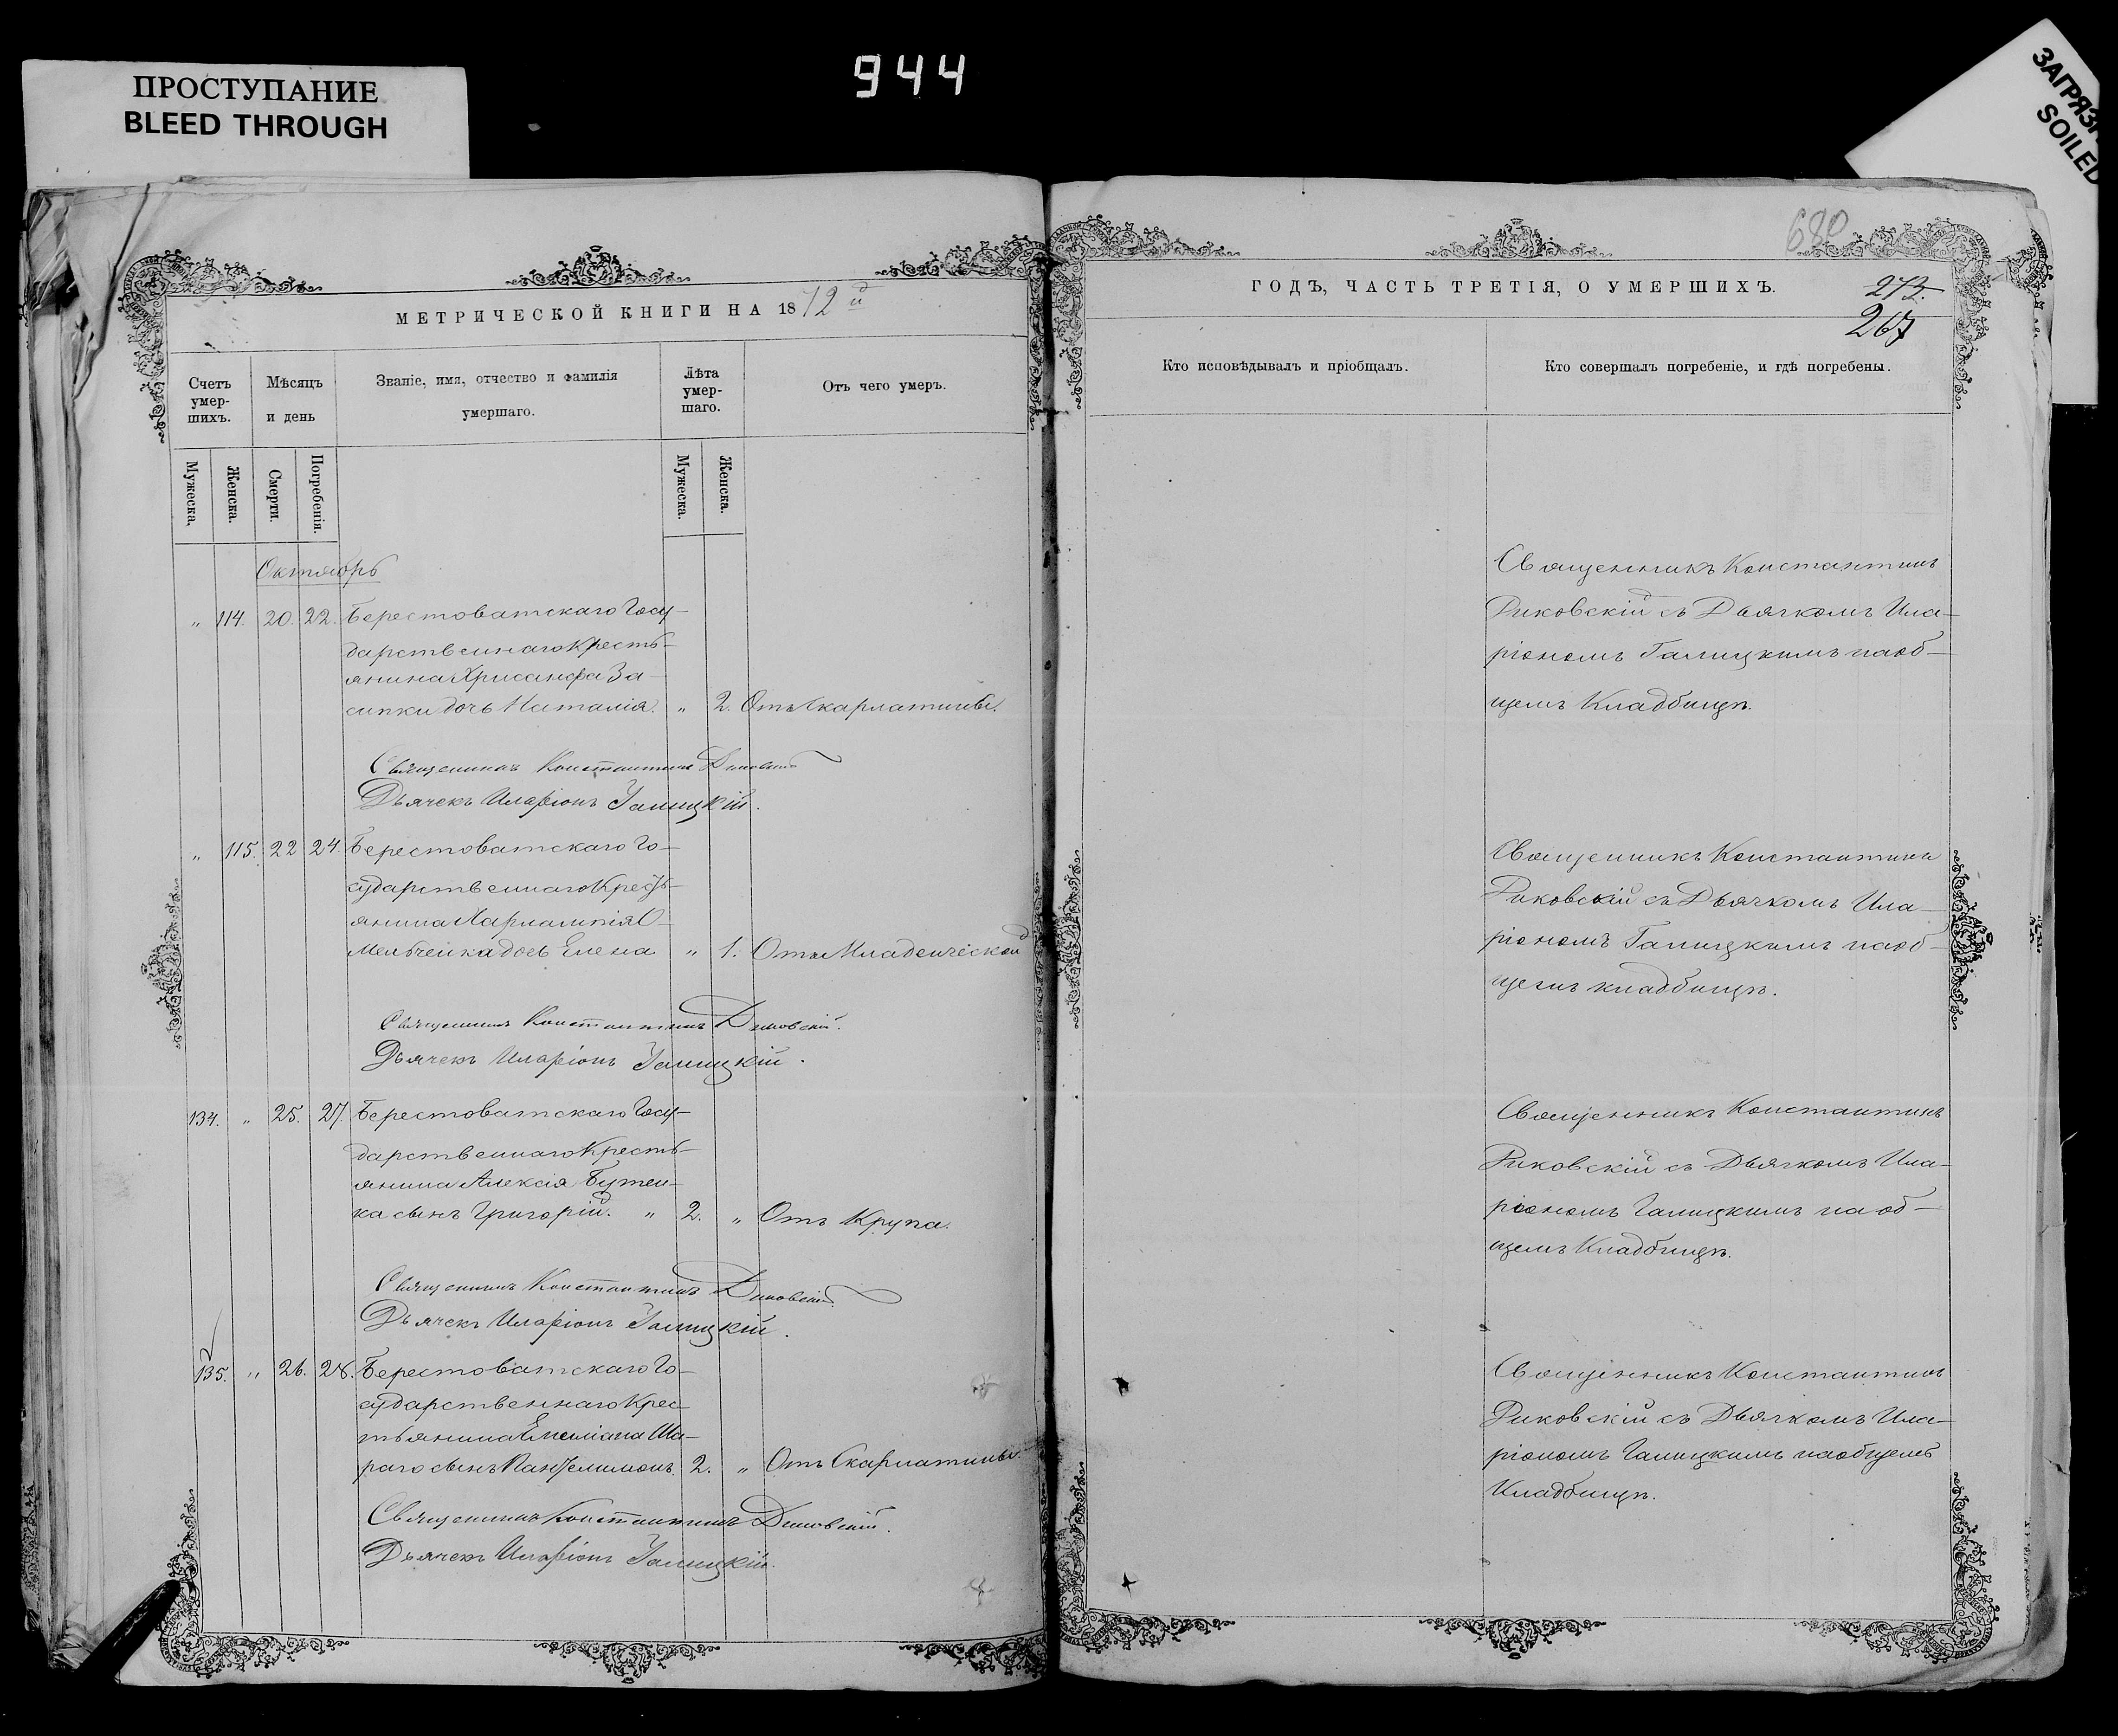 944
ПРОСТУПАНИЕ
BLEED THROUGH
ЗАГРЯЗН
SOILED
МЕТРИЧЕСКОЙ КНИГИ НА 1872й
Счетъ умер-шихъ.
Мѣсяцъ и день
Званіе, имя, отчество и фамилія умершаго.
Лѣта умер-шаго.
Отъ чего умеръ.
Мужеска.
Женска.
Смерти.
Погребенія.
Мужеска.
Женска.
Октябрь
„ 114. 20. 22. Берестоватскаго Госу-
дарственнаго Кресть-
янина Хрисанфа За-
сипки дочь Наталія. „ 2. Отъ Скарлатины.
Священникъ Константинъ
Дьячекъ Иларіонъ Галицкій.
„ 115. 22 24. Берестоватскаго Го-
сударственнаго Кресть-
янина Харлампія О-
мельченка дочь Елена „ 1. Отъ Младенческой
Священникъ Константинъ
Дьячекъ Иларіонъ Галицкій.
134. „ 25. 27. Берестоватскаго Госу-
дарственнаго Кресть-
янина Алексія Бутен-
ка сынъ Григорій. „ 2. „ Отъ Крупа.
Священникъ Константинъ
Дьячекъ Иларіонъ Галицкій.
135. „ 26. 28. Берестоватскаго Го-
сударственнаго Крес-
тьянина Емеліана Ша-
раго сынъ Пантелимонъ. 2. „ Отъ Скарлатины.
Священникъ Константинъ
Дьячекъ Иларіонъ Галицкій.
680
ГОДЪ, ЧАСТЬ ТРЕТІЯ, О УМЕРШИХЪ.
273.
267
Кто исповѣдывалъ и пріобщалъ.
Кто совершалъ погребеніе, и гдѣ погребены.
Священникъ Константинъ
съ Дьячкомъ Ила-
ріономъ Галицкимъ на об-
щемъ Кладбищѣ.
Священникъ Константинъ
съ Дьячкомъ Ила-
ріономъ Галицкимъ на об-
щемъ кладбищѣ.
Священникъ Константинъ
съ Дьячкомъ Ила-
ріономъ Галицкимъ на об-
щемъ Кладбищѣ.
Священникъ Константинъ
съ Дьячкомъ Ила-
ріономъ Галицкимъ на общемъ
Кладбищѣ.